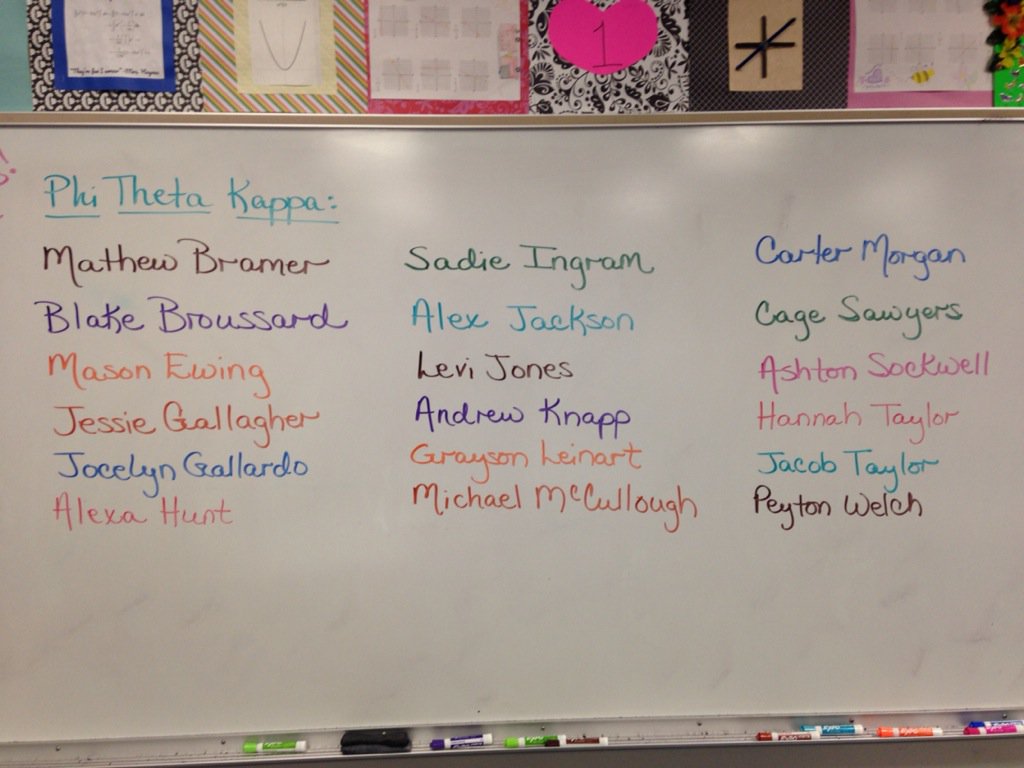 Phi Theta Kappa:
Mathew Bramer
Blake Broussard
Mason Ewing
Jessie Gallagher
Jocelyn Gallardo
Alexa Hunt
Sadie Ingram
Alex Jackson
Levi Jones
Andrew Knapp
Grayson Leinart
Michael McCullough
Carter Morgan
Cage Sawyers
Ashton Sockwell
Hannah Taylor
Jacob Taylor
Peyton Welch
1